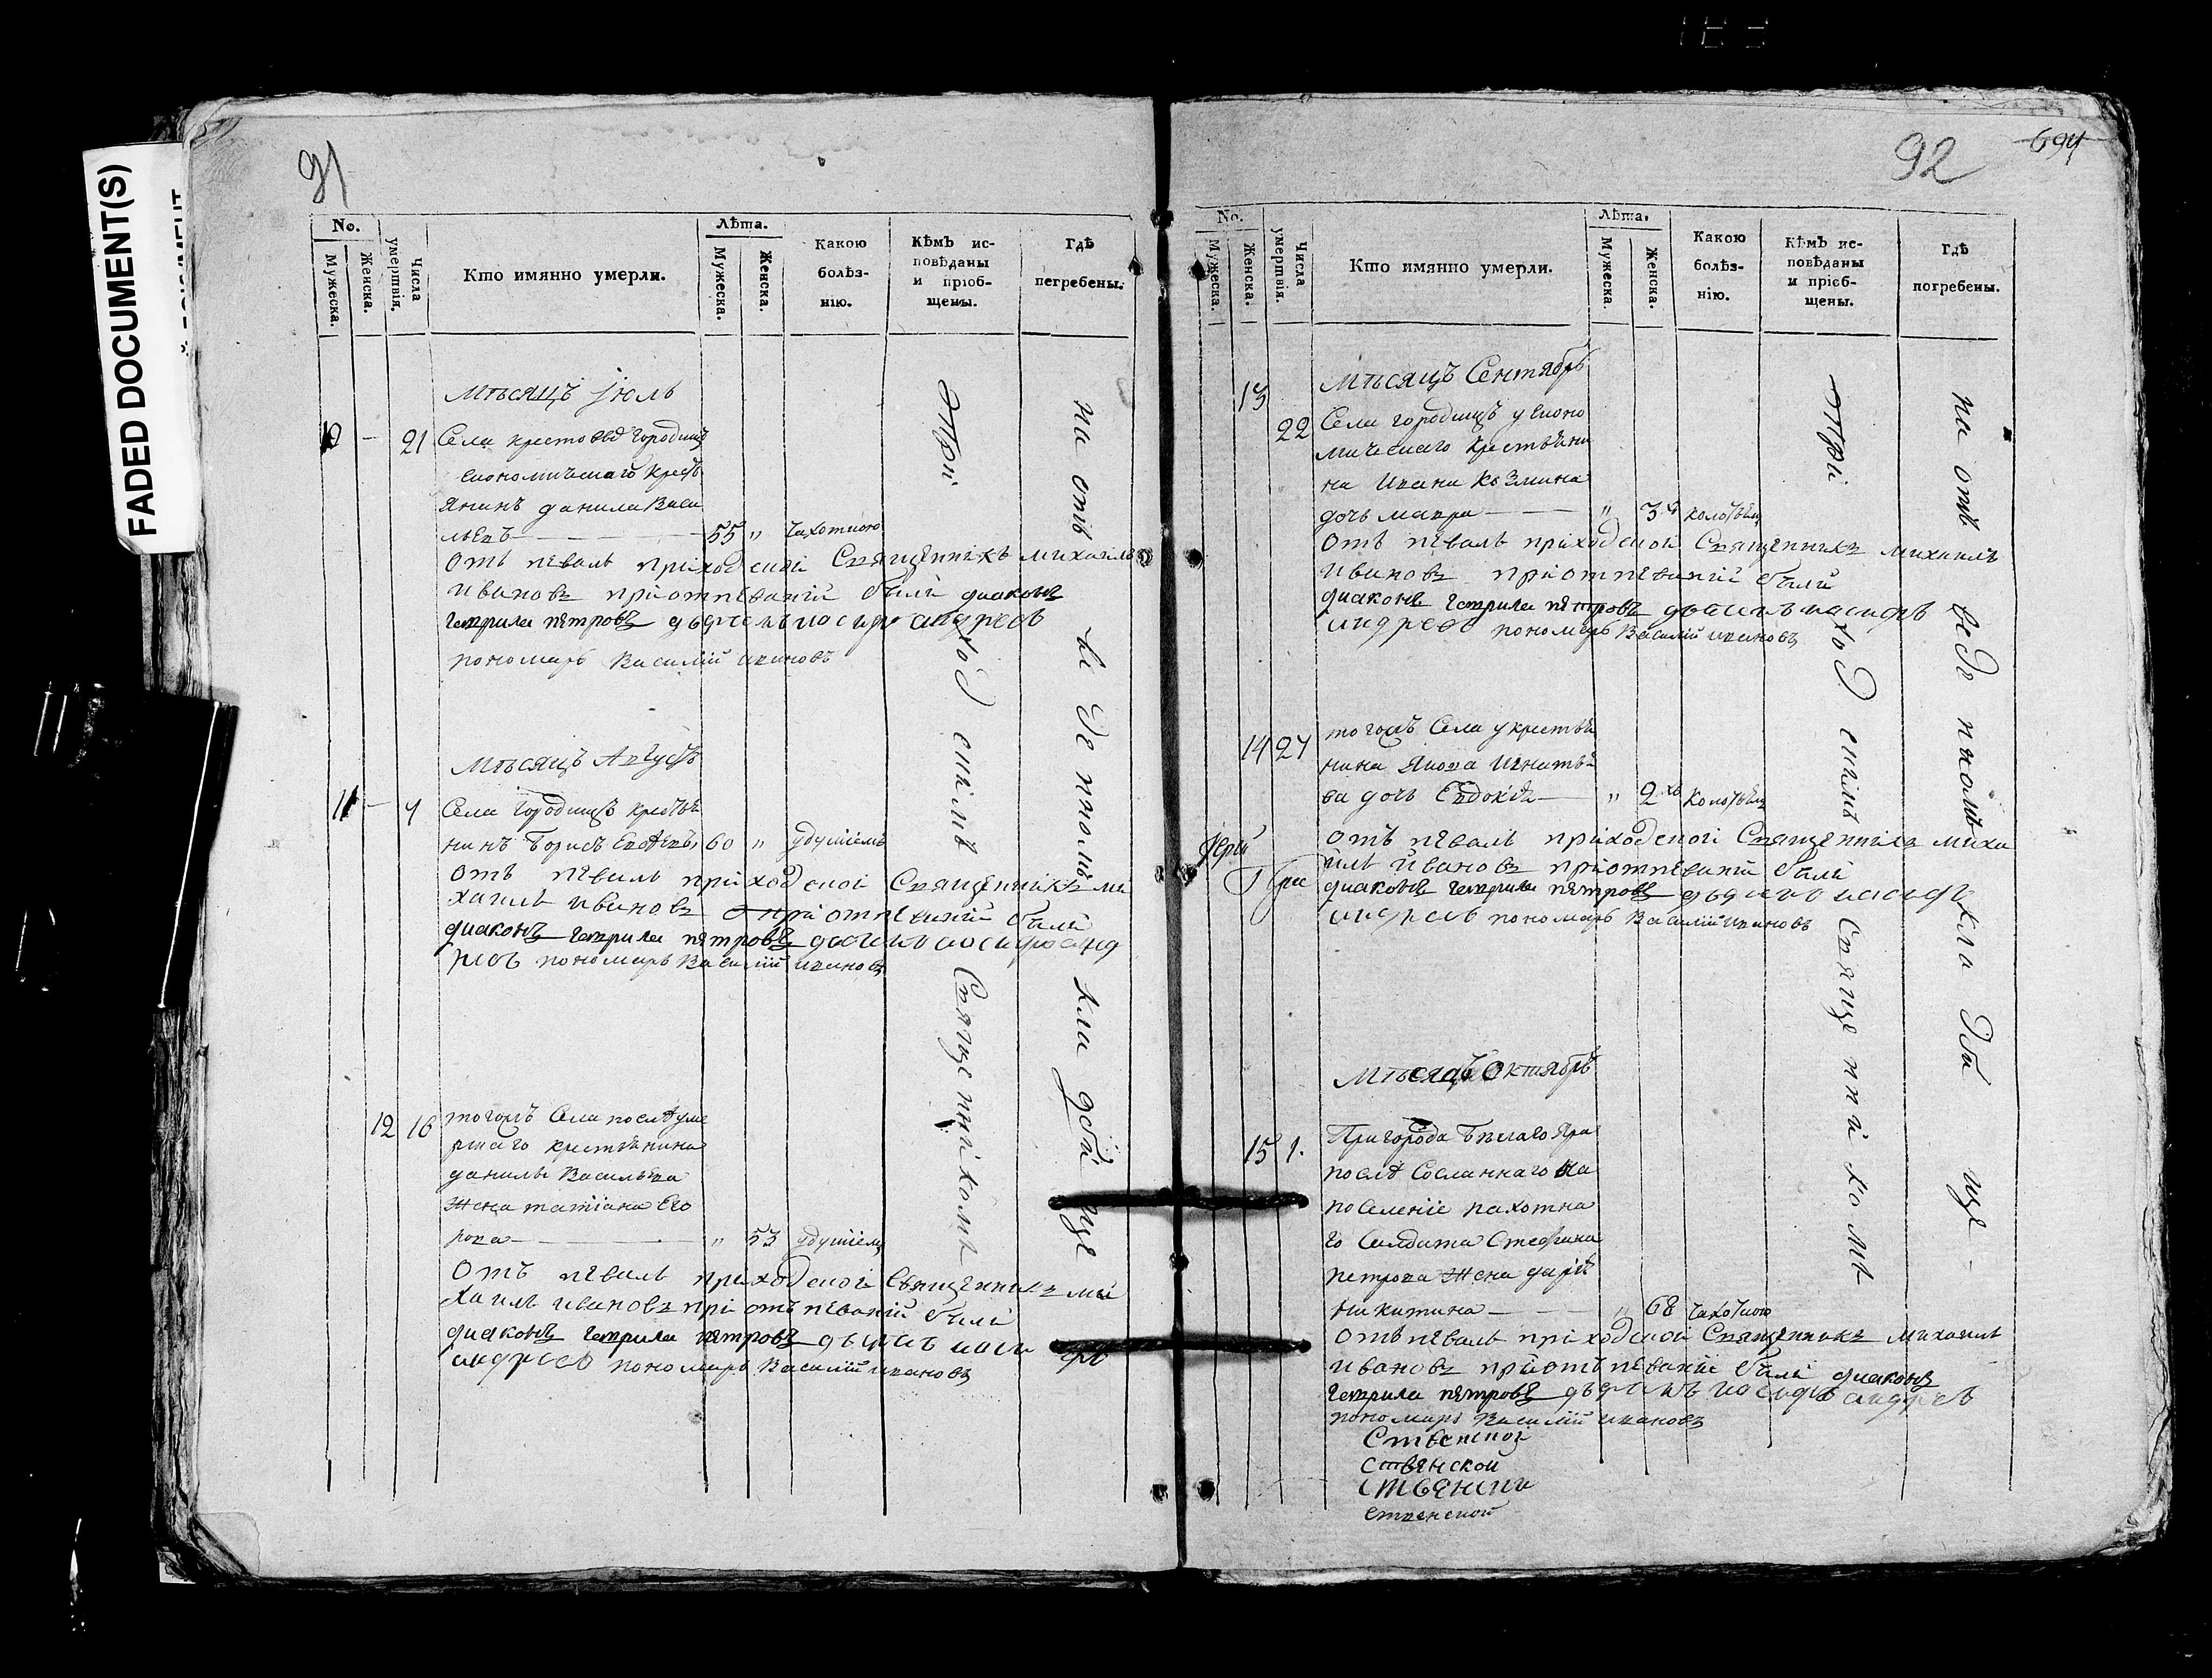 FADED DOCUMENT(S)
91
No.
Мужеска.
Женска.
Числа умертвія.
Кто имянно умерли.
Лѣта.
Мужеска.
Женска.
Какою болѣзнію.
Кѣмъ исповѣданы и пріобщены.
Гдѣ погребены.
Мѣсяцъ Іюль
21 Села крестовыхъ городищъ
економическаго крестъ
янинъ данила Васи
льевъ 55 " Чахоткою
отъ певалъ приходской Священникъ михаилъ
Ивановъ приотпеваніи были диаконъ
гаврила петровъ дьячекъ иосифъ андреевъ
пономарь Василій ивановъ
Мѣсяцъ Августъ
11 - 7 Села городищъ крестья
нинъ Борисъ 60 " удушіемъ
отъ певалъ приходской Священникъ ми
хаилъ Ивановъ приотпеваніи были
диаконъ гаврила петровъ дьячекъ иосифъ анд
реевъ пономарь Василій ивановъ
12 16 тогожъ Села послѣ уме
ршаго крестьянина
данилы Васильева
Жена татіана Его
рова " 53 удушіемъ
отъ певалъ приходской Священникъ ми
хаилъ Ивановъ при отъ певаніи были
диаконъ гаврила петровъ дьячекъ иосифъ
андреевъ пономарь Василій ивановъ
приходскимъ Священникомъ
на отведенномъ кладбище
92
694
No.
Мужеска.
Женска.
Числа умертвія.
Кто имянно умерли.
Лѣта.
Мужеска.
Женска.
Какою болѣзнію.
Кѣмъ исповѣданы и пріобщены.
Гдѣ погребены.
13 Мѣсяцъ Сентябрь
22 Села городищъ у Еконо
мическаго крестьяни
на Ивана Козмина
дочь мавра " 3
отъ певалъ приходской Священникъ михаилъ
Ивановъ приотпеваніи были
диаконъ гаврила петровъ дьячекъ иосифъ
андреевъ пономарь Василій ивановъ
14 27 тогожъ Села у крестья
нина Якова Игнатье
ва дочь Евдокія " 2
отъ певалъ приходской Священникъ миха
илъ Ивановъ приотпеваніи были
диаконъ гаврила петровъ дьячекъ иосифъ
андреевъ пономарь Василій ивановъ
Мѣсяцъ Октябрь
15 1. Пригорода Белаго Яра
послѣ Сосланнаго на
поселеніе пахотна
го Солдата Стефана
петрова Жена дарія
никитина " 68 Чахоткою
отъ певалъ приходской Священникъ михаилъ
Ивановъ приотъпеваніи были диаконъ
гаврила петровъ дьячекъ иосифъ андреевъ
пономарь Василій ивановъ
Ственской
Ственской
Ственской
Ственской
приходскимъ Священникомъ
на отведенномъ кладбище